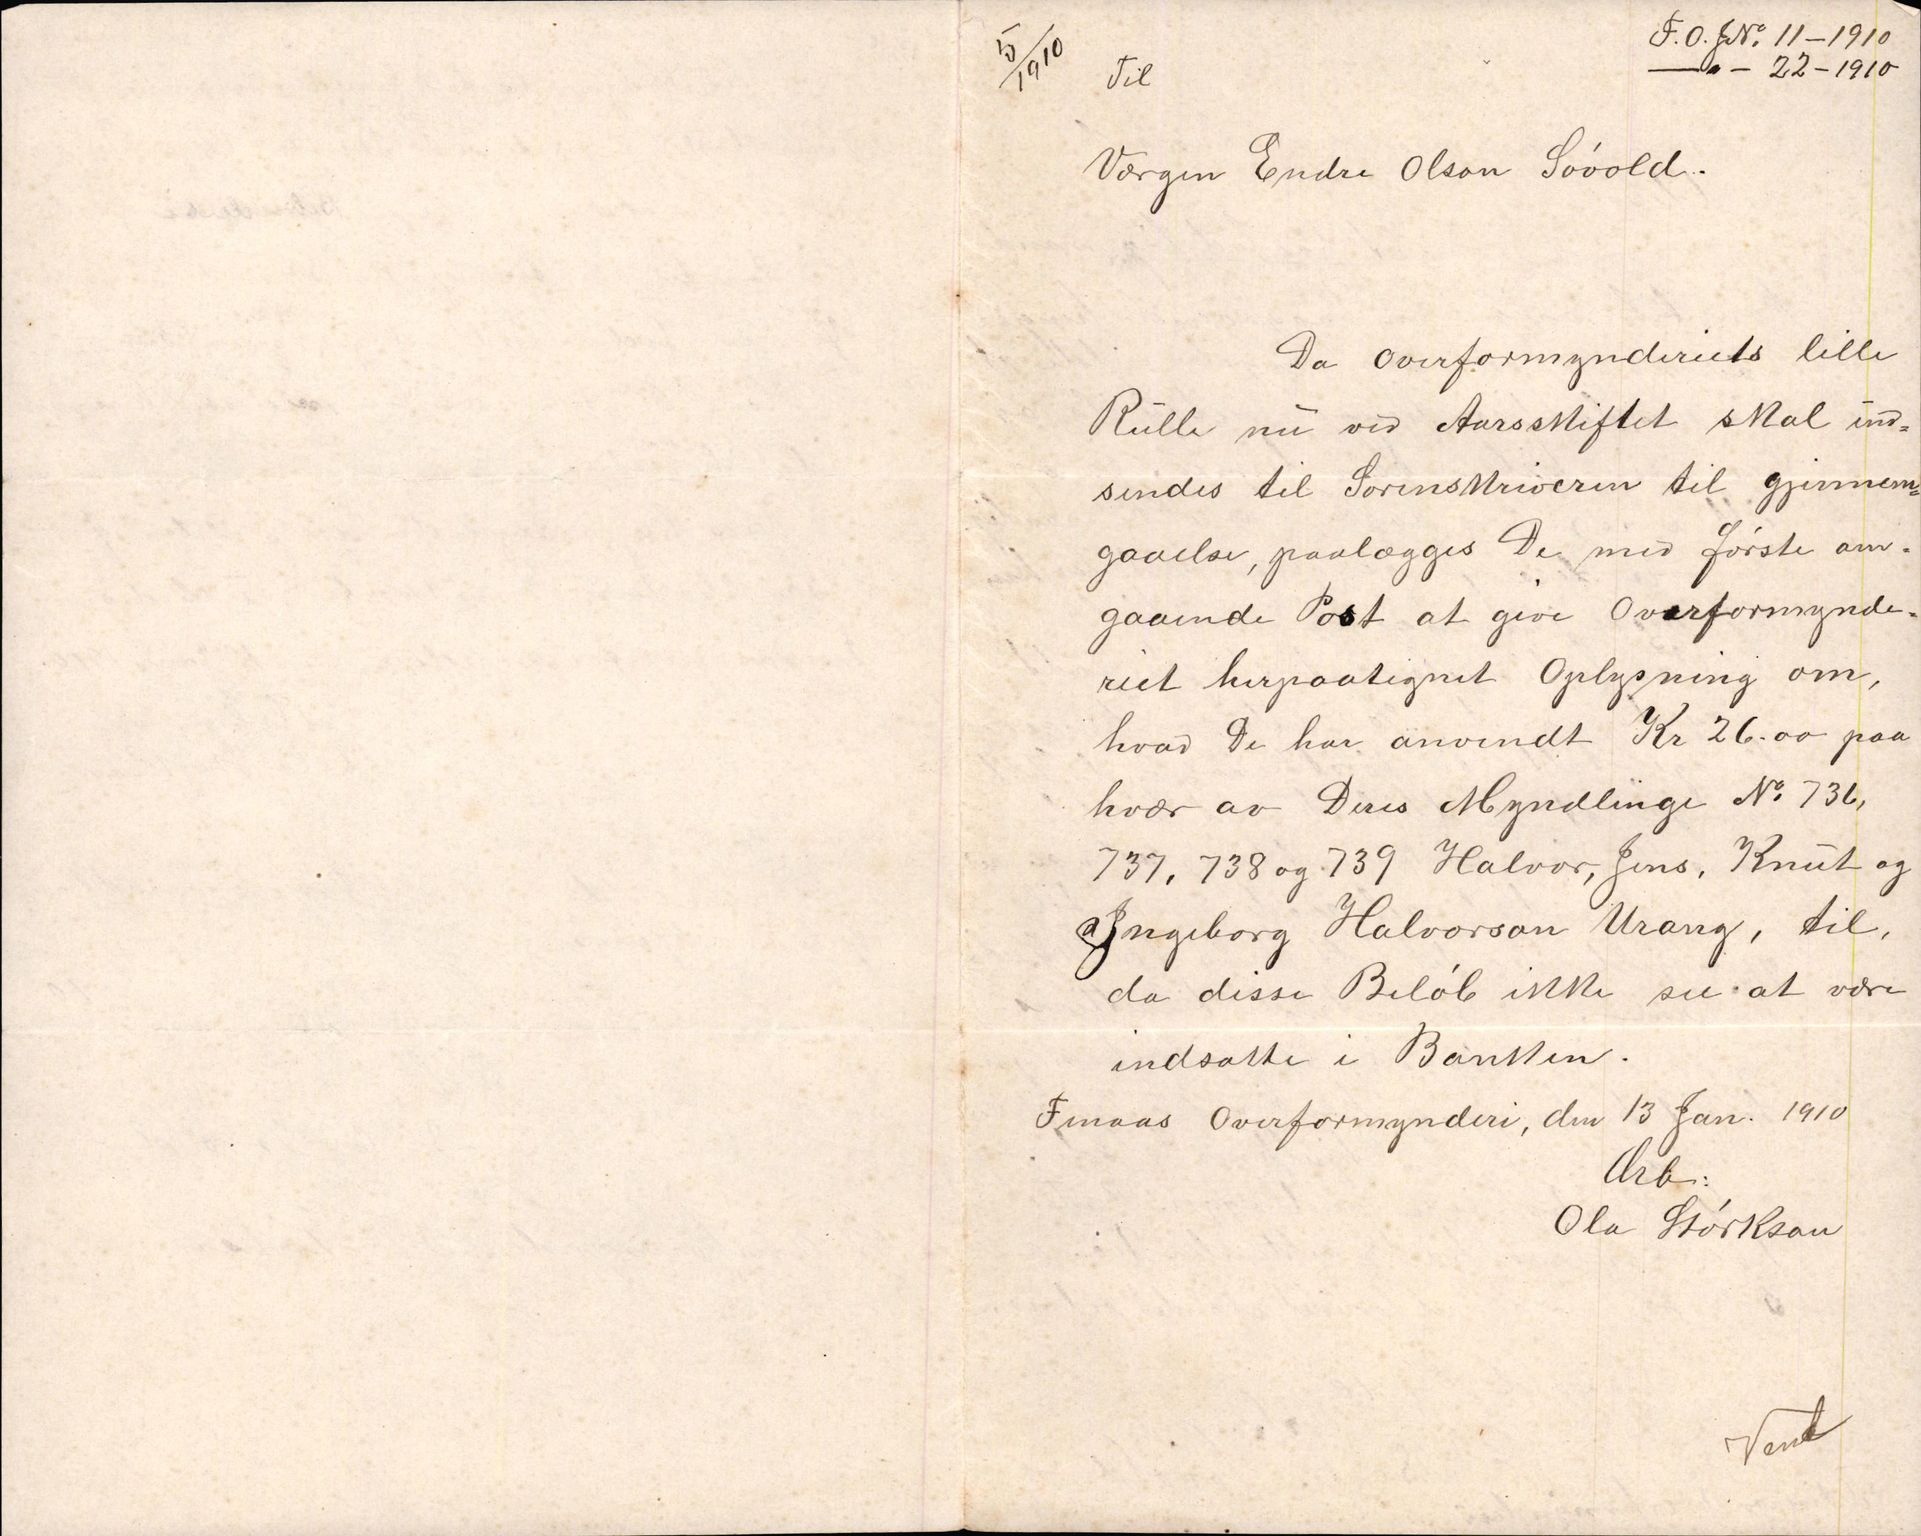 5/1910
F. O. J.№. 11 – 1910
— " — 22 – 1910
Til
Værgen Endre Olson Sövold.
Da Overformynderiets lille
Rulle nu ved Aarsskiftet skal ind=
sendes til Sorenskriveren til gjennem=
gaaelse, paalægges De med förste om-
gaaende Post at give Overformynde-
riet herpaategnet Oplysning om,
hvad De har anvendt Kr 26.00 paa
hvær av Deres Myndlinge №. 736,
737, 738 og 739 Halvor, Jens, Knut og
Ingeborg Halvorson Urang, til,
da disse Belöb ikke see at være
indsatte i Banken.
Finaas Overformynderi, den 13 Jan. 1910
Ærb:
Ola Störkson
Vend